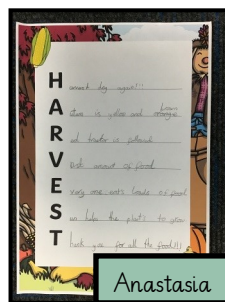 H arvest day again!!
A utum is yellow and orange brown
R ed tractor is
V ast amount of food
E very one eats loads of food
S un help the plants to grow
T hank you for all the food!!!
Anastasia